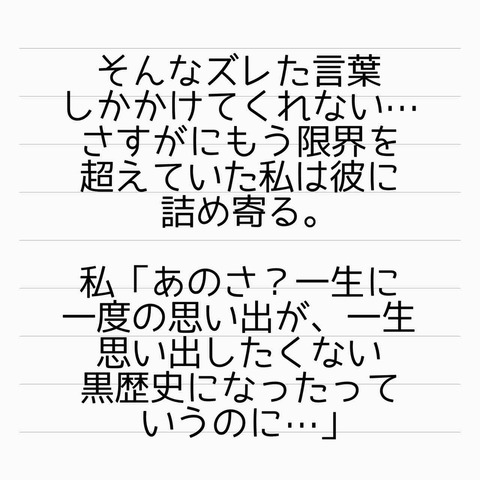 そんなズレた言葉
しかかけてくれない…
さすがにもう限界を
超えていた私は彼に
詰め寄る。
私「あのさ？一生に
一度の思い出が、一生
思い出したくない
黒歴史になったって
いうのに…」